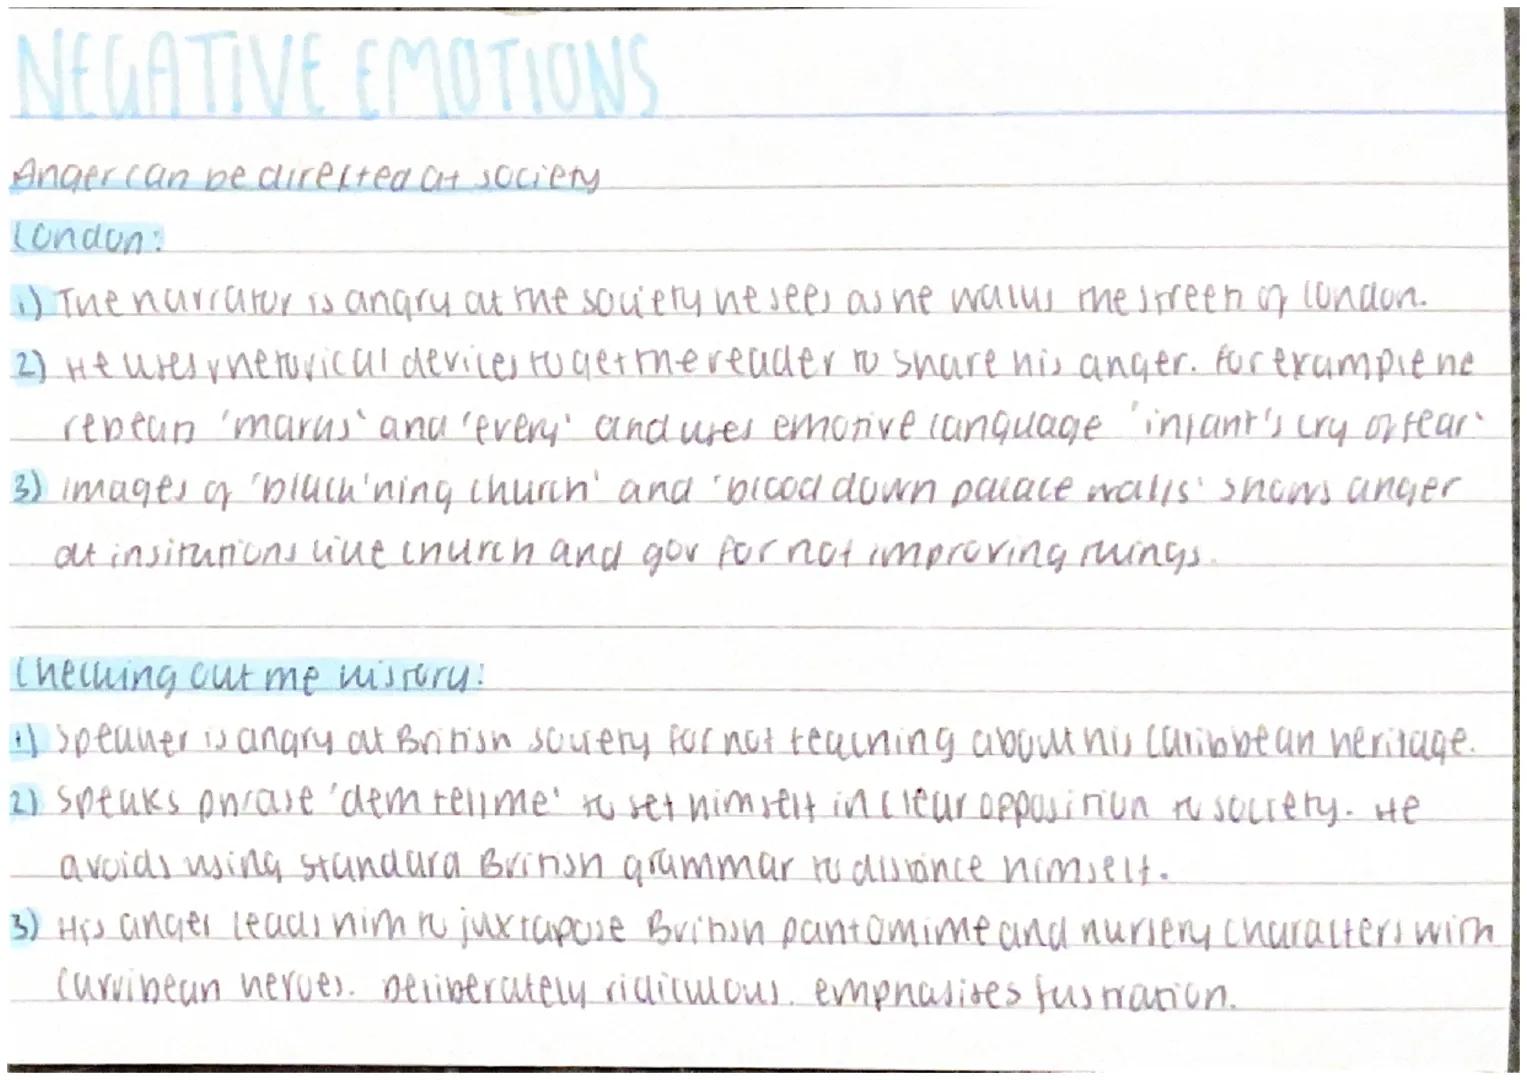 NEGATIVE EMOTIONS
Anger can be directed at society
London:
1) The narrator is angry at the society he sees as he walks the streets of London.
2) He uses rhetorical devices to get the reader to share his anger. For example he
repeats 'marks' and 'every' and uses emotive language 'infant's cry of fear'
3) images of 'black'ning church' and 'blood down palace walls' shows anger
at insitutions like church and gov for not improving things.
Checking out me history:
1) Speaker is angry at British society for not teaching about his Caribbean heritage.
2) Speaks phrase 'dem tell me' to set himself in clear opposition to society. He
avoids using standard British grammar to distance himself.
3) His anger leads him to juxtapose British pantomime and nursery characters with
Carribean heroes. Deliberately ridiculous. emphasises fustration.